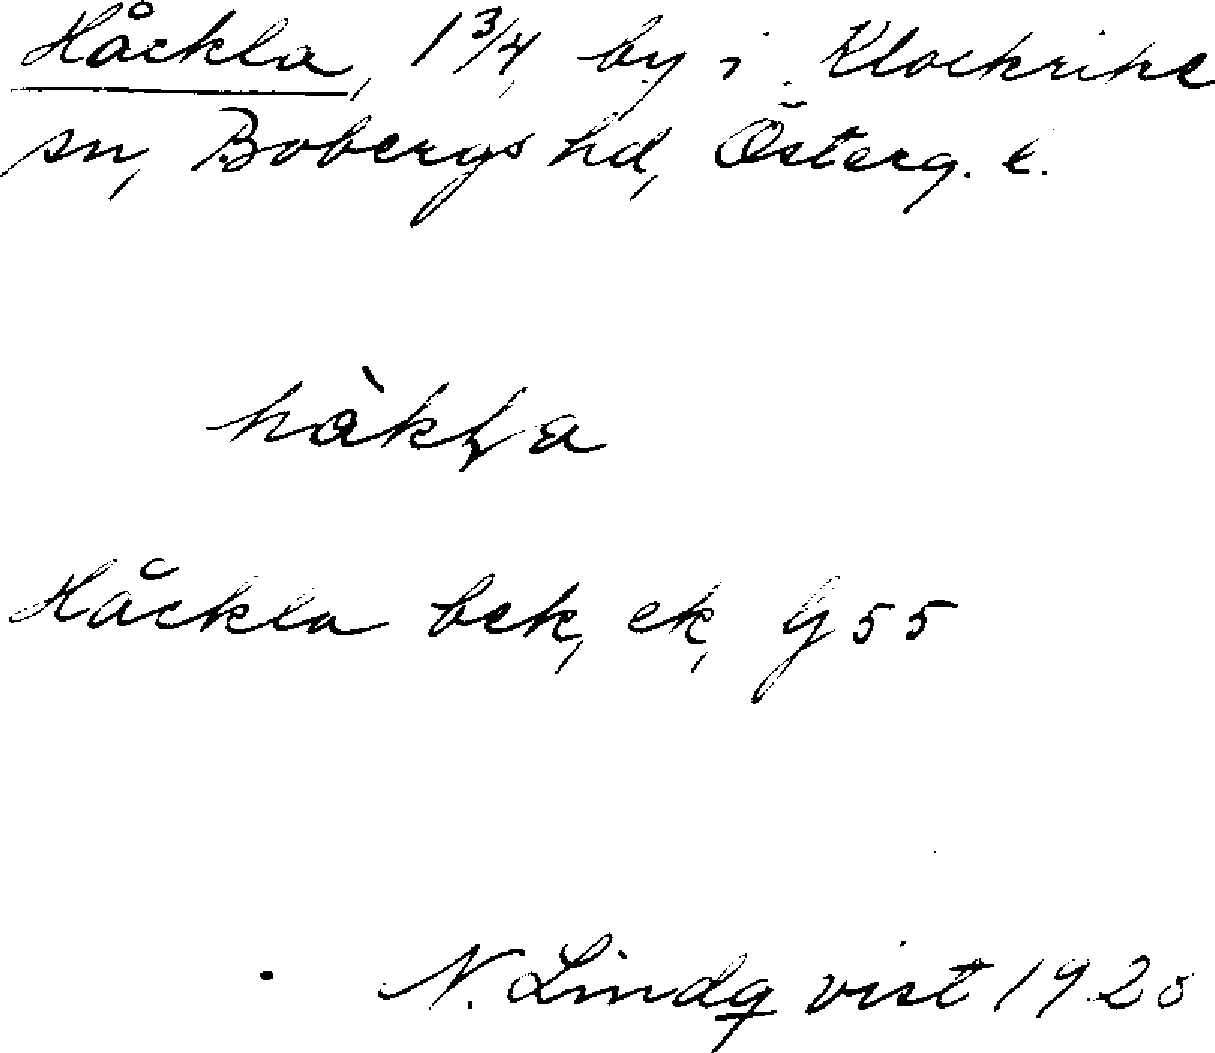 Håckla, 1 3/4, by i Klockrike
sn, Bobergs hd, Österg. l.
hàkḷa
Håckla bek, ek, G 55
N. Lindqvist 1920